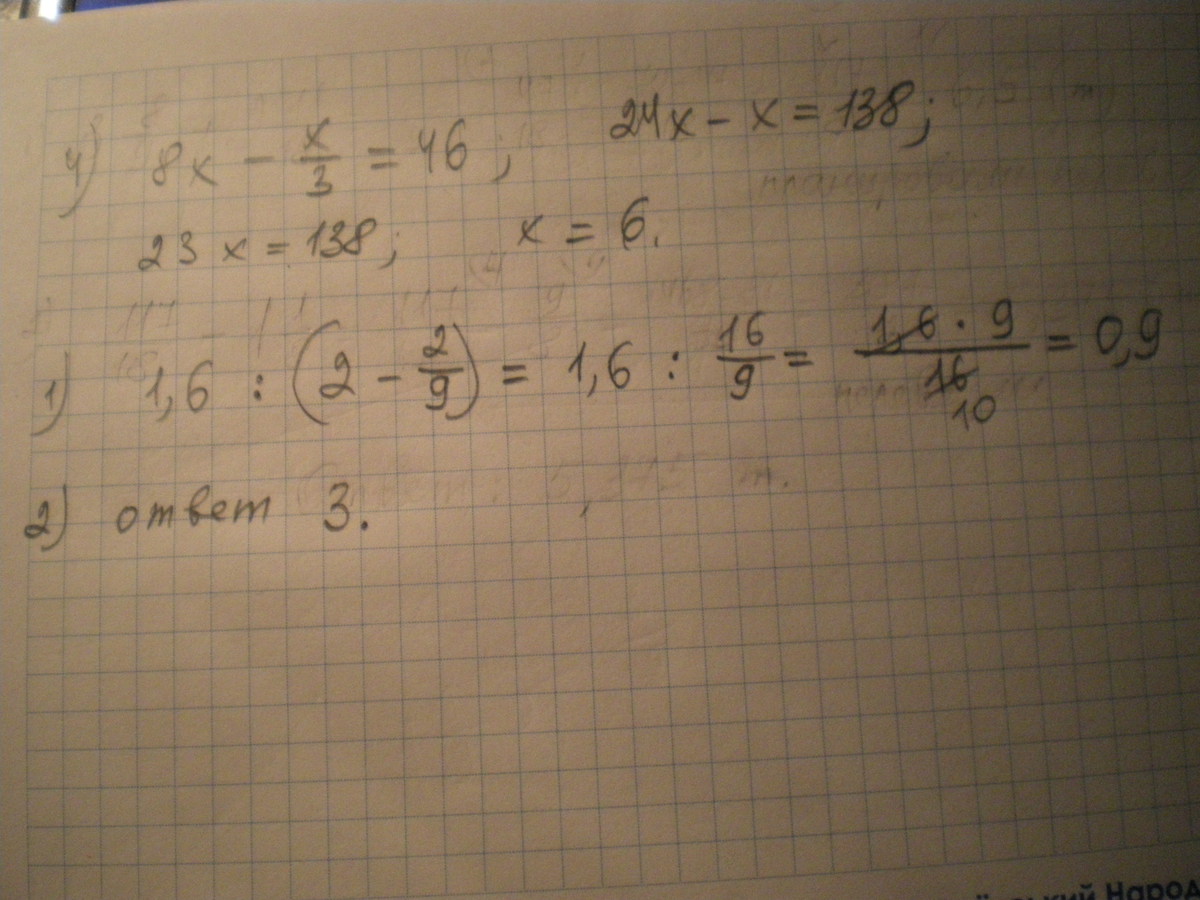 4) 8x - x/3 = 46; 24x - x = 138;
23x = 138; x = 6.
1) 1,6 : (2 - 2/9) = 1,6 : 16/9 = 1,6 · 9 / 16 = 0,9
10
2) ответ 3.
Народ